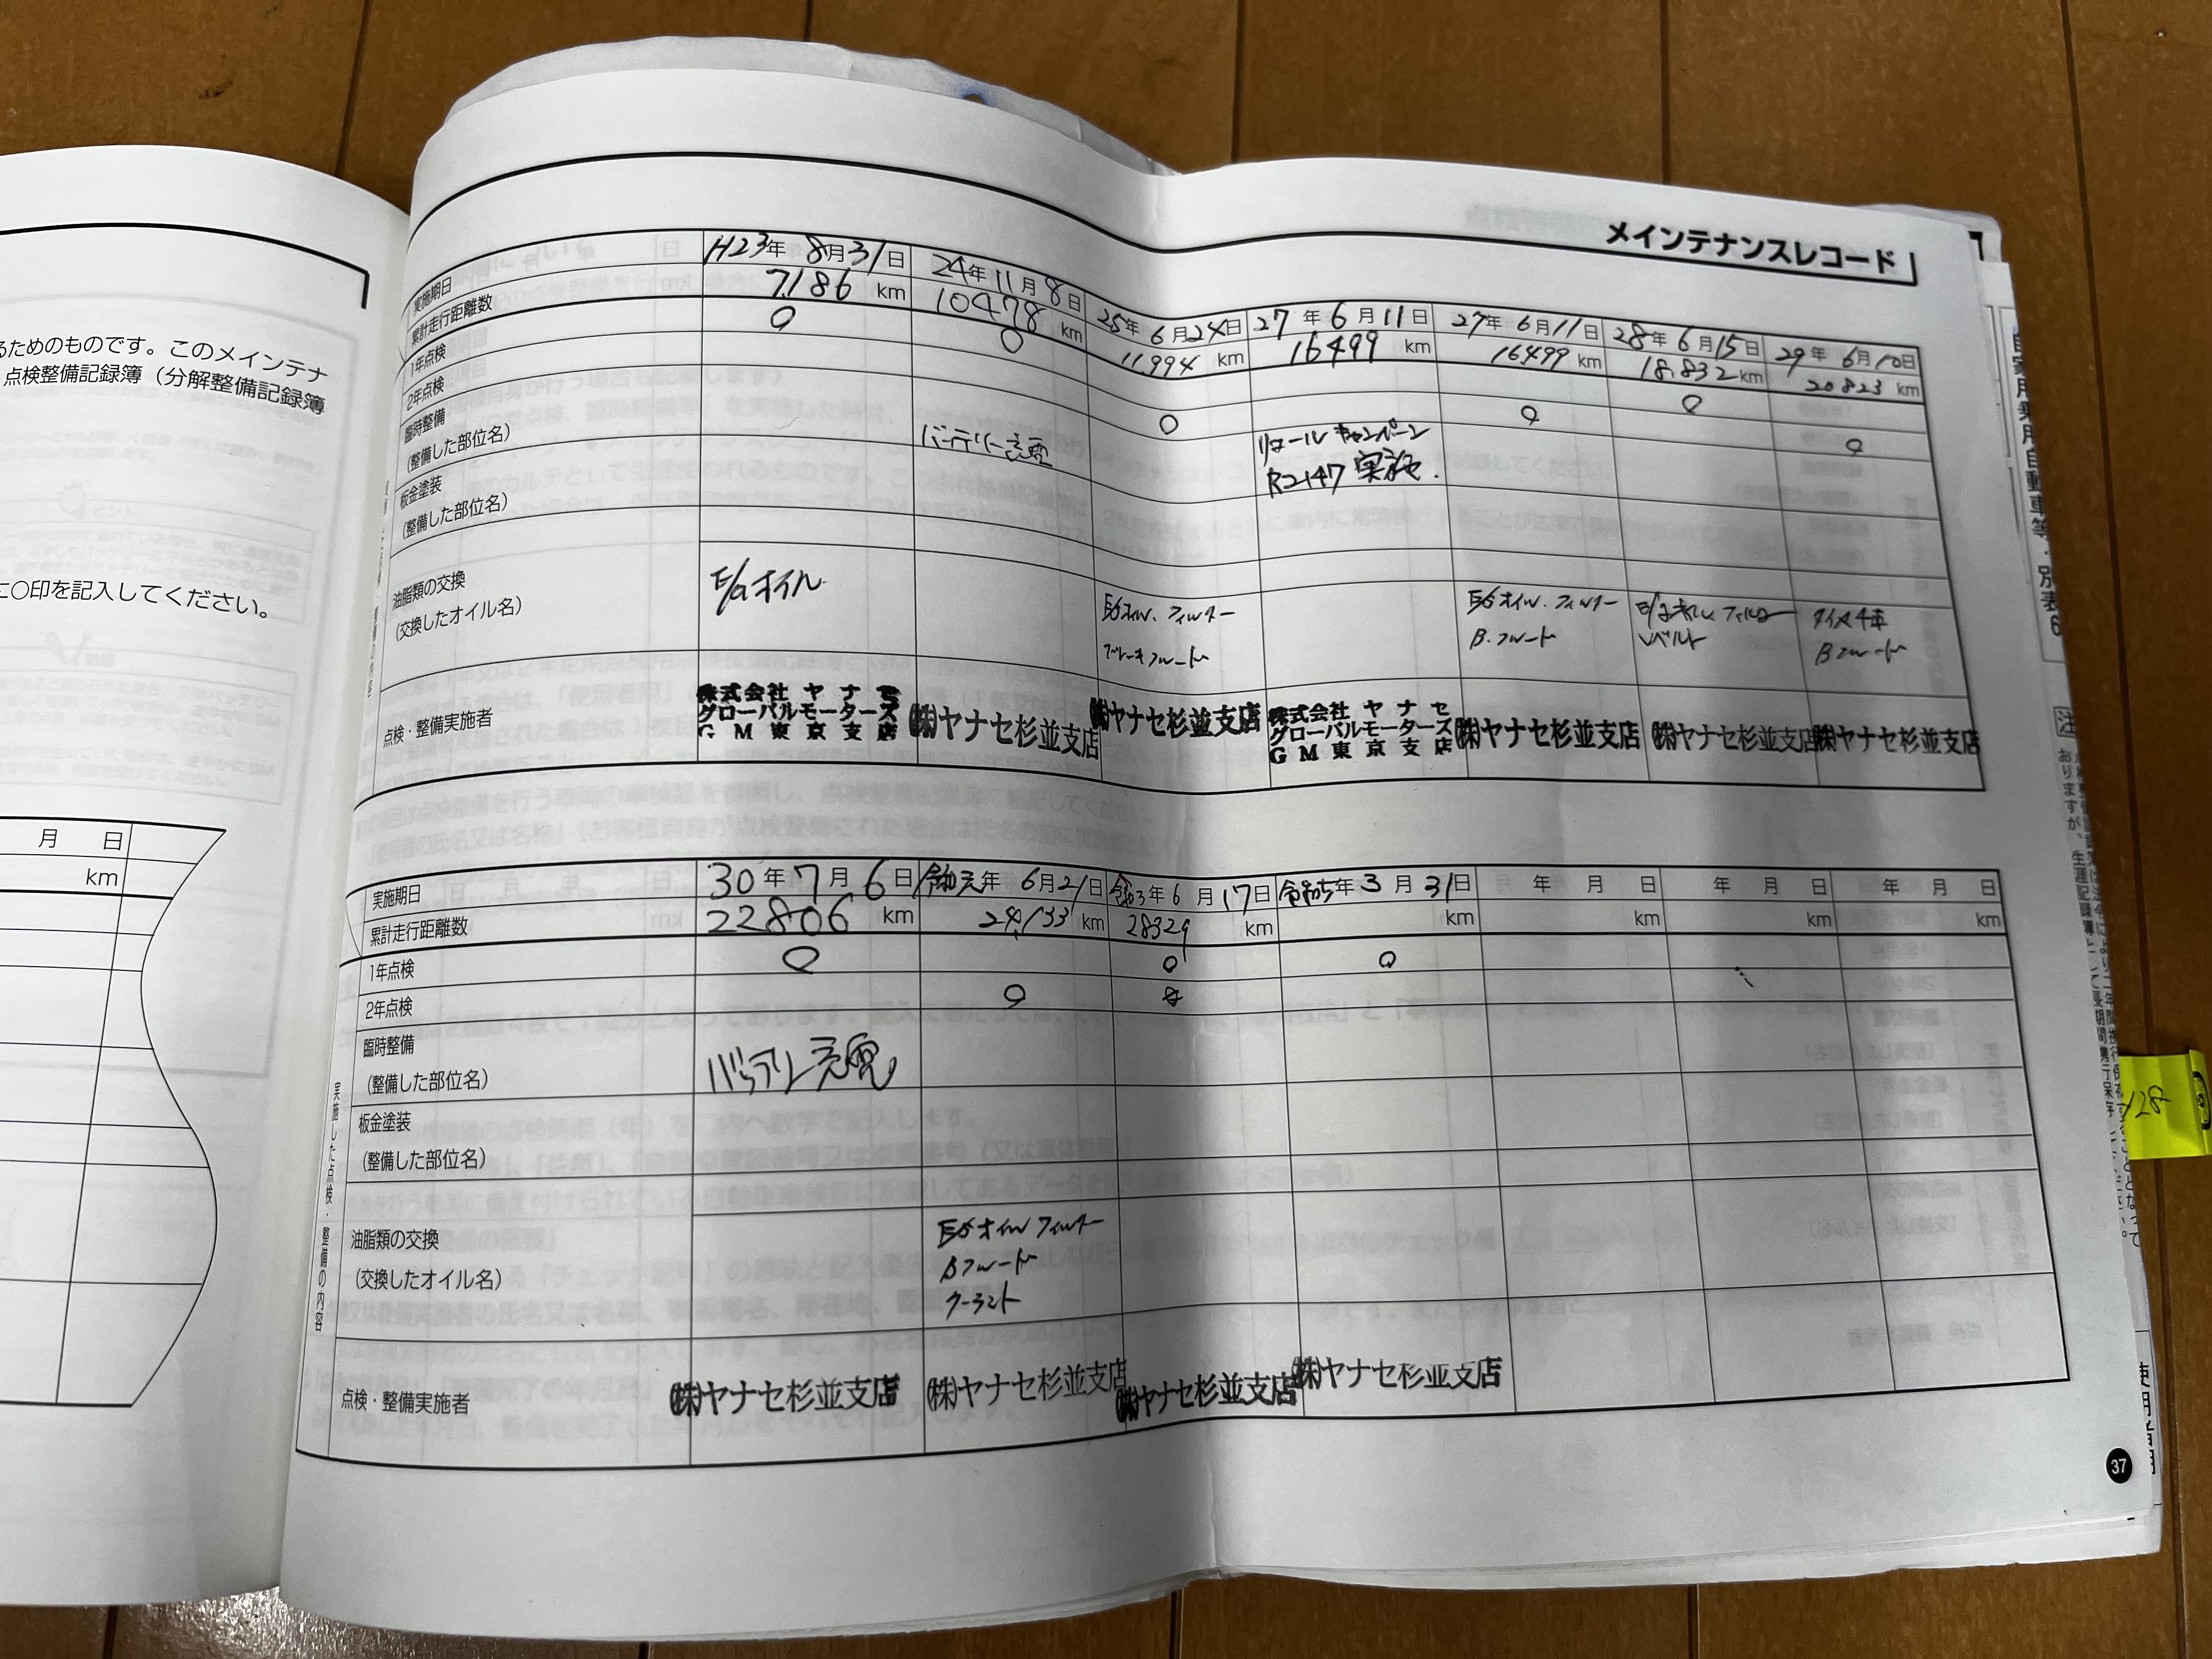 るためのものです。このメインテナ
点検整備記録簿（分解整備記録簿
に○印を記入してください。
月 日
km
メインテナンスレコード
実施期日 H23年 8月31日 24年11月8日 25年6月24日 27年6月11日 27年6月11日 28年6月15日 29年6月10日
累計走行距離数 7,186 km 10478 km 11,994 km 16499 km 16499 km 18,832 km 20823 km
1年点検 ○ ○ ○
2年点検 ○ ○ ○
臨時整備
(整備した部位名) バッテリー充電 リコールキャンペーン
R2147 実施.
板金塗装
(整備した部位名)
油脂類の交換 E/Gオイル
(交換したオイル名) E/Gオイル.フィルター E/Gオイル.フィルター
ブレーキフルード B.フルード Bフルード
点検・整備実施者 株式会社ヤナセ
グローバルモーターズ
GM東京支店 ㈱ヤナセ杉並支店 ㈱ヤナセ杉並支店 株式会社ヤナセ
グローバルモーターズ
GM東京支店 ㈱ヤナセ杉並支店 ㈱ヤナセ杉並支店 ㈱ヤナセ杉並支店
実施した点検・整備の内容
実施期日 30年7月6日 令和元年6月21日 令和3年6月17日 令和5年3月31日 年 月 日 年 月 日 年 月 日
累計走行距離数 22806 km 24,133 km 28329 km km km km km
1年点検 ○ ○ ○
2年点検 ○
臨時整備
(整備した部位名) バッテリー充電
板金塗装
(整備した部位名)
油脂類の交換 E/Gオイル フィルター
(交換したオイル名) Bフルード
クーラント
点検・整備実施者 ㈱ヤナセ杉並支店 ㈱ヤナセ杉並支店 ㈱ヤナセ杉並支店 ㈱ヤナセ杉並支店
37
自家用乗用自動車等・別表6
注
使用者用